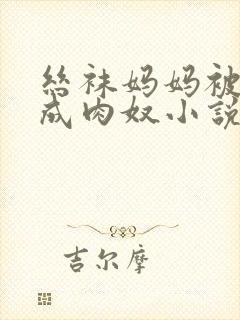 丝袜妈妈被
成肉奴小說
吉尔摩